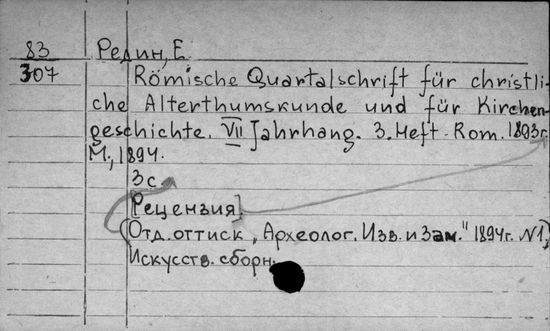 83 Редин, Е.
307 Römische Quartalschrift für christli-
che Alterthumskunde und für Kirchen-
geschichte. VII Jahrhang. 3. Heft. Rom. 1893г.
М., 1894.
3 с.
[Рецензия].
(Отд. оттиск „Археолог. Изв. и Зам." 1894г. N1,)
Искусств. сборн.